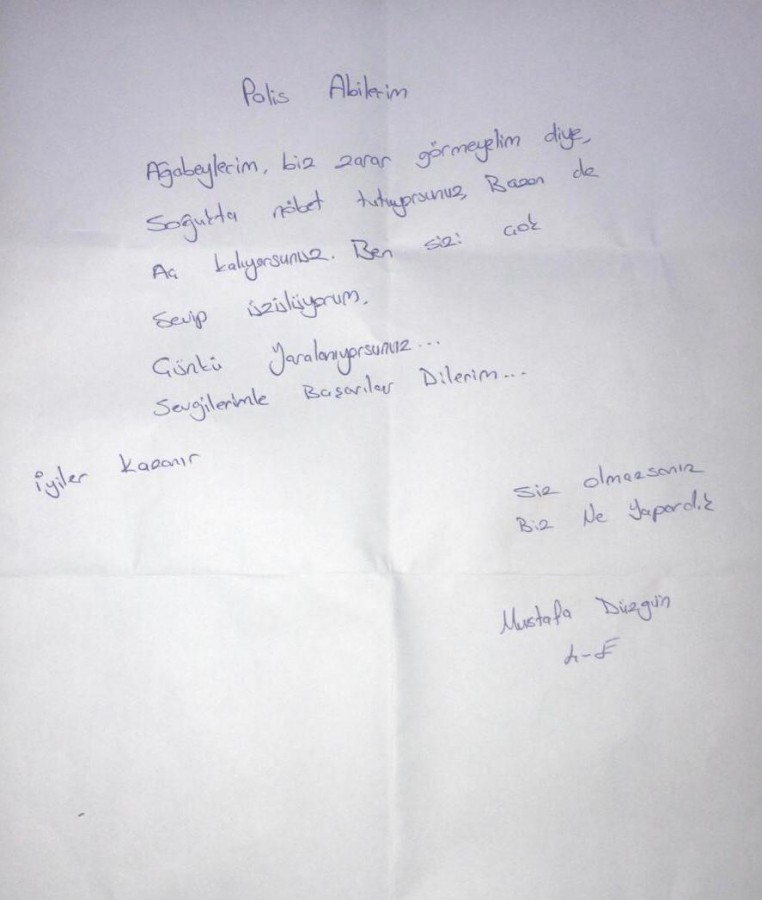 Polis Abilerim
Ağabeylerim, biz zarar görmeyelim diye,
Soğukta nöbet tutuyorsunuz, Bazen de
Aç kalıyorsunuz. Ben sizi çok
Sevip üzülüyorum.
Çünkü Yaralanıyorsunuz...
Sevgilerimle Başarılar Dilerim...
İyiler Kazanır
Siz olmazsanız
Biz Ne Yapardık
Mustafa Düzgün
4-E